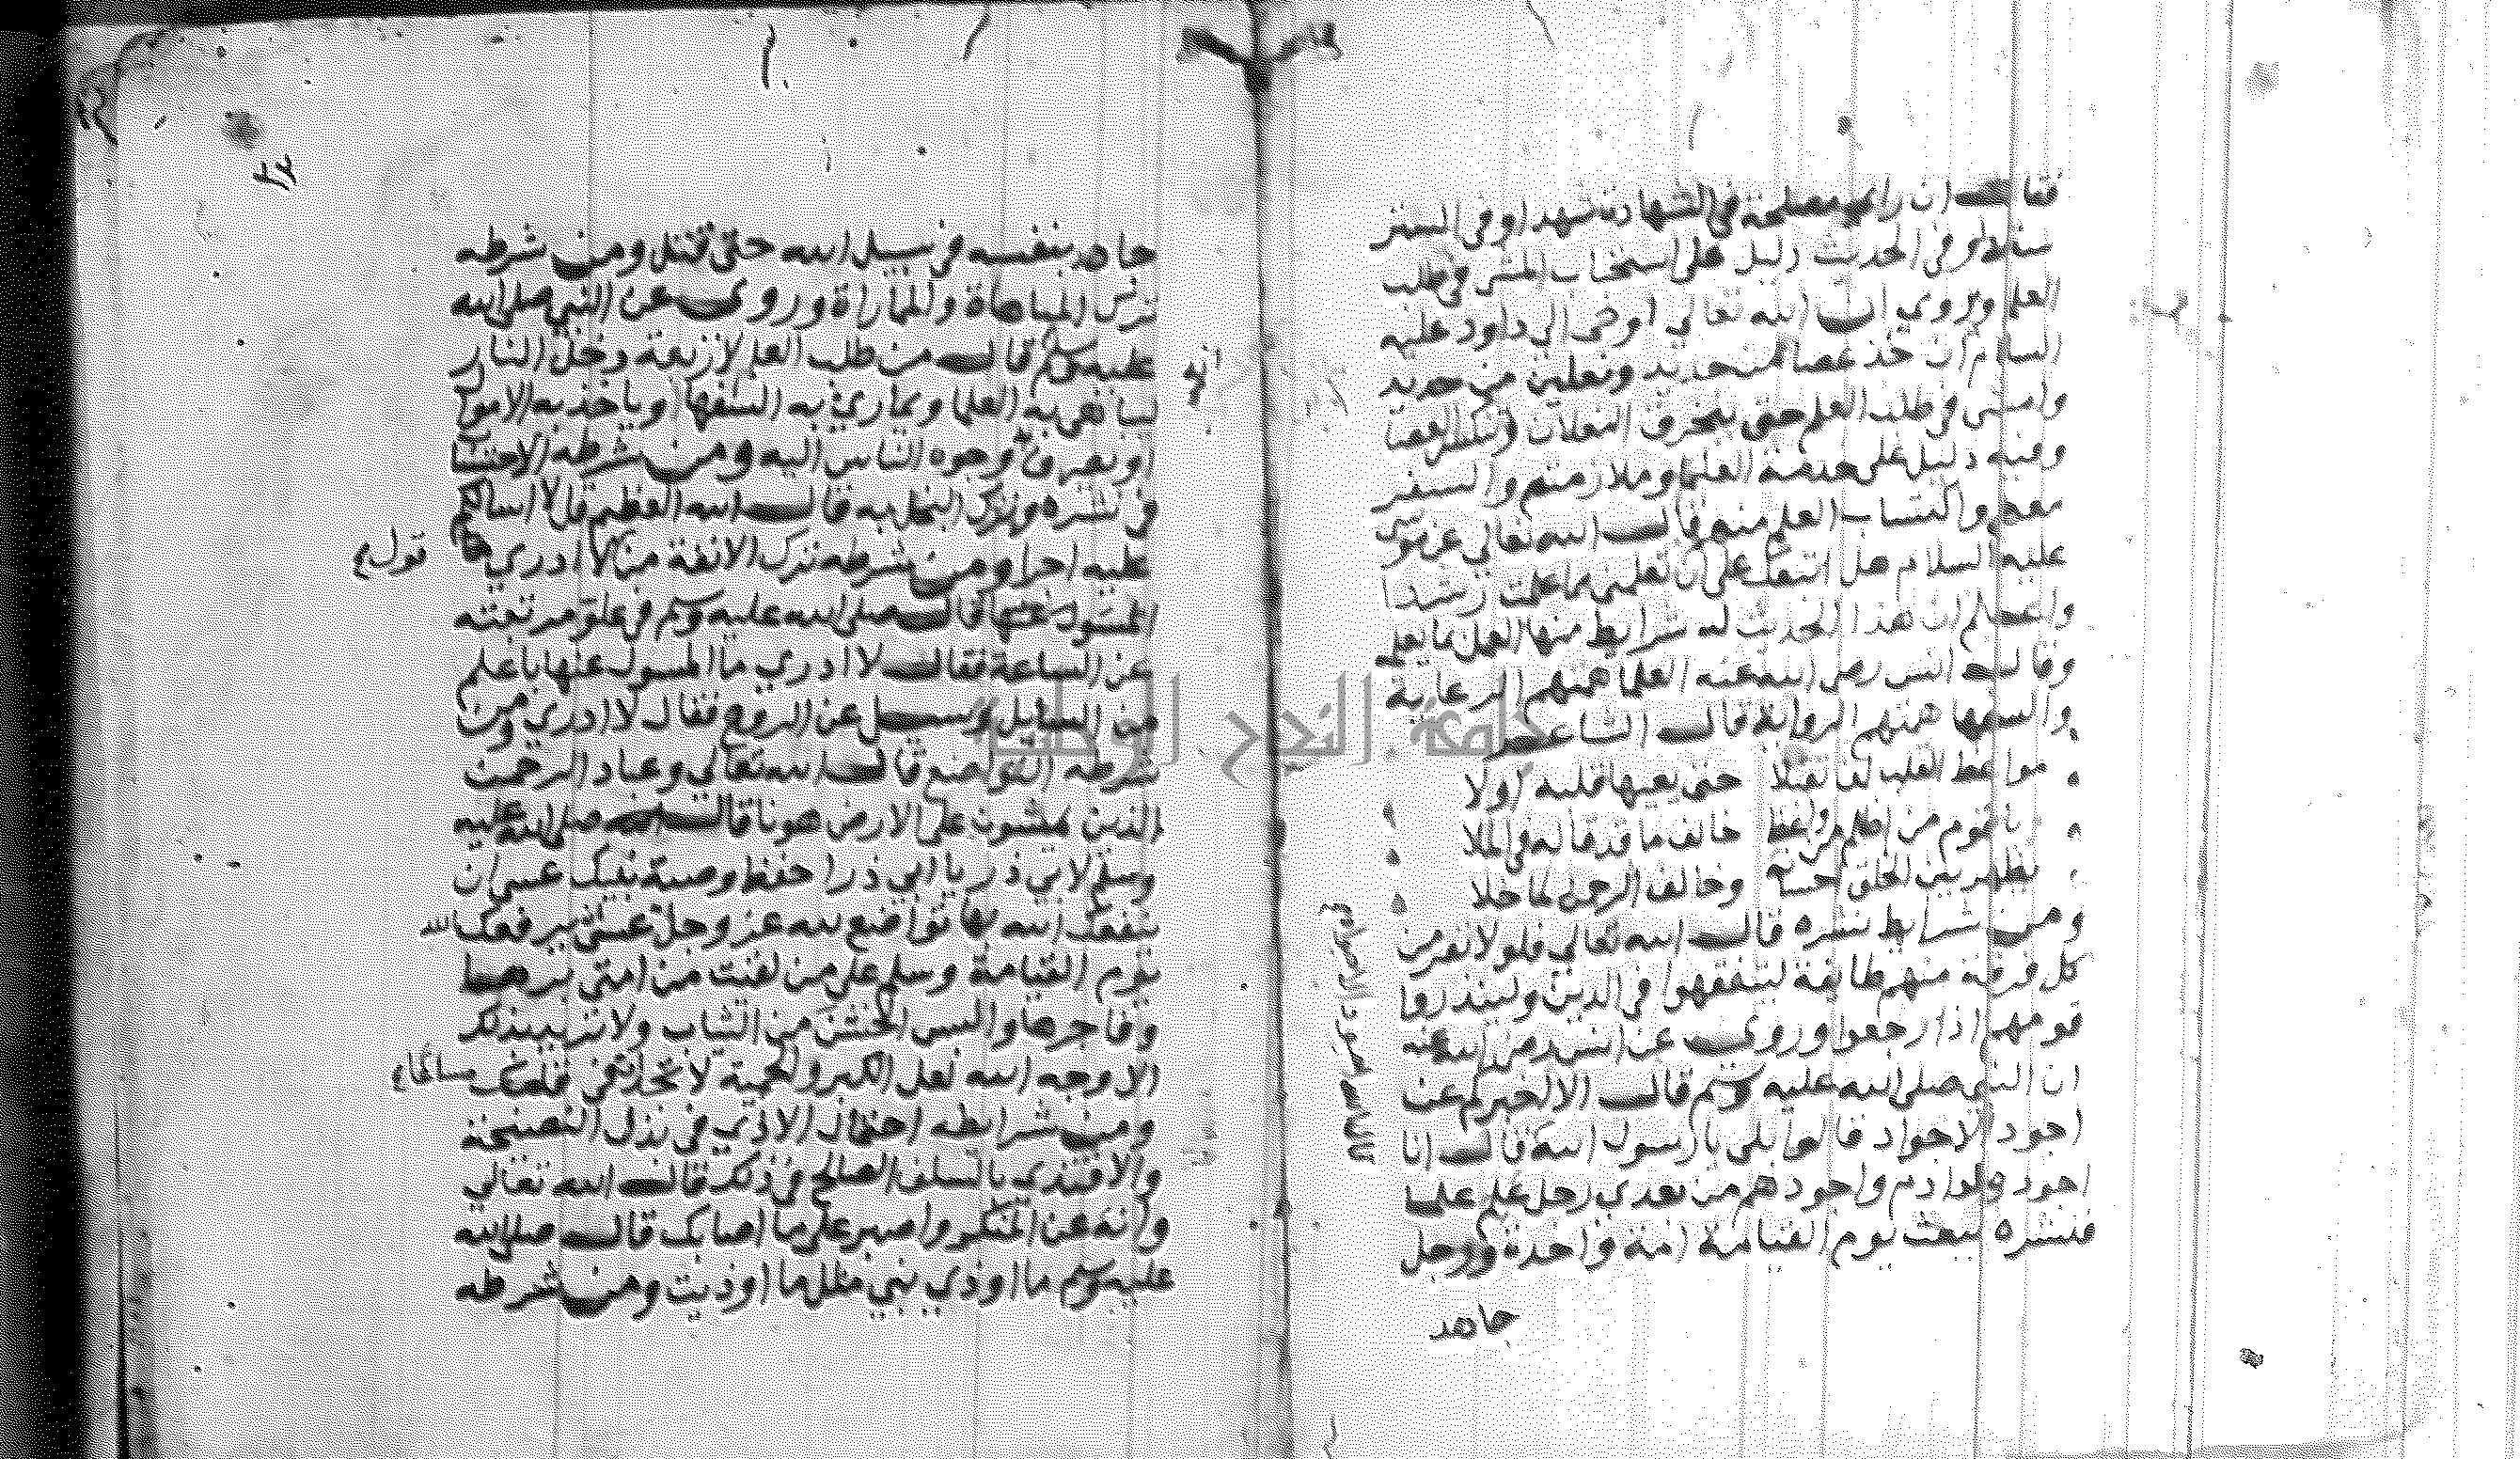 فقالت ان راى مصلحة في الشهادة شهد او في الستر
ستر وفي الحديث دليل على استحباب المشي في طلب
العلم ويروي ان الله تعالي اوحى الي داود عليه
السلام ان خذ عصا من حديد ونعلين من حديد
وامشى في طلب العلم حتى ينخرق النعلان وتنكسر العصا
وفيه دليل على خدمة العلما وملازمتهم والسفر
معهم واكتساب العلم منهم قال الله تعالي عن موسى
عليه السلام هل اتبعك على ان تعلمني مما علمت رشدا
واعلم ان هذا الحديث له شرايط منها العمل بما يعلم
وقال انس رضي الله عنه العلما همتهم الرعاية
والسفها همتهم الرواية قال الشاعر
مواعظ القلب لن تقبلا حتى يعيها قلبه اولا
يا قوم من اظلم من واعظ خالف ما قد قاله في الملا
يظهر بين الخلق احسانه وخالف الرحمن لما خلا
ومن شرايط نشره قال الله تعالي فلولا نفر من
كل فرقة منهم طايفة ليتفقهوا في الدين ولينذروا
قومهم اذا رجعوا وروي عن انس رضي الله عنه
ان النبي صلى الله عليه وسلم قال الا اخبركم عن
اجود الاجواد قالوا بلى يا رسول الله قال انا
اجود ولد ادم واجودهم من بعدي رجل علم علما
فنشره يبعث يوم القيامة امة واحدة ورجل
جاهد
٢٣
جاهد بنفسه في سبيل الله حتى قتل ومن شرطه
ترك المباهاة والمماراة وروي عن النبي صلى الله
عليه وسلم انه قال من طلب العلم لاربعة دخل النار
ليباهي به العلما ويماري به السفها او ياخذ به الاموال
او يصرف وجوه الناس اليه ومن شرطه الاحتساب
في نشره وترك البخل به قال الله العظيم قل لا اسالكم
عليه اجرا ومن شرطه ترك الانفة من قول لا ادري
صلى الله عليه وسلم في علو مرتبته
عن الساعة فقال لا ادري ما المسول عنها باعلم
من السايل وسيل عن الروح فقال لا ادري ومن
شرطه التواضع قال الله تعالي وعباد الرحمن
الذين يمشون على الارض هونا قال صلى الله عليه
وسلم لابي ذر يا ابي ذر احفظ وصية نبيك عسى ان
ينفعك الله بها تواضع لله عز وجل عسى ان يرفعك الله
يوم القيامة وسلم على من لقيت من امتي برها
وفاجرها والبس الخشن من الثياب ولا تريد بذلك
الا وجه الله لعل الكبر والحمية لا تجد في قلبك مساغا
ومن شرايطه احتمال الاذي في بذل النصيحة
والاقتدي بالسلف الصالح في ذلك قال الله تعالي
وانه عن المنكر واصبر على ما اصابك قال صلى الله
عليه وسلم ما اوذي نبي مثل ما اوذيت ومن شرطه
جامعة النجاح الوطنية